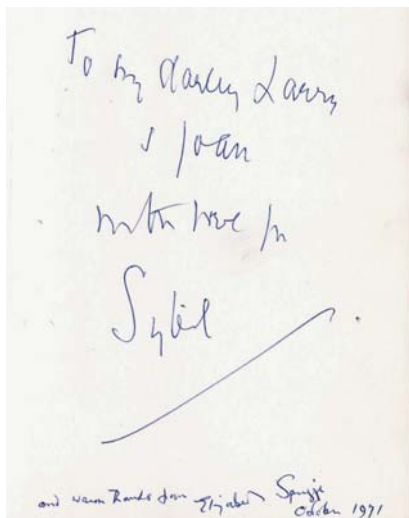 To my darling Larry
& Joan
with love from
Sybil
and warm thanks from Elizabeth Sprigge
October 1971